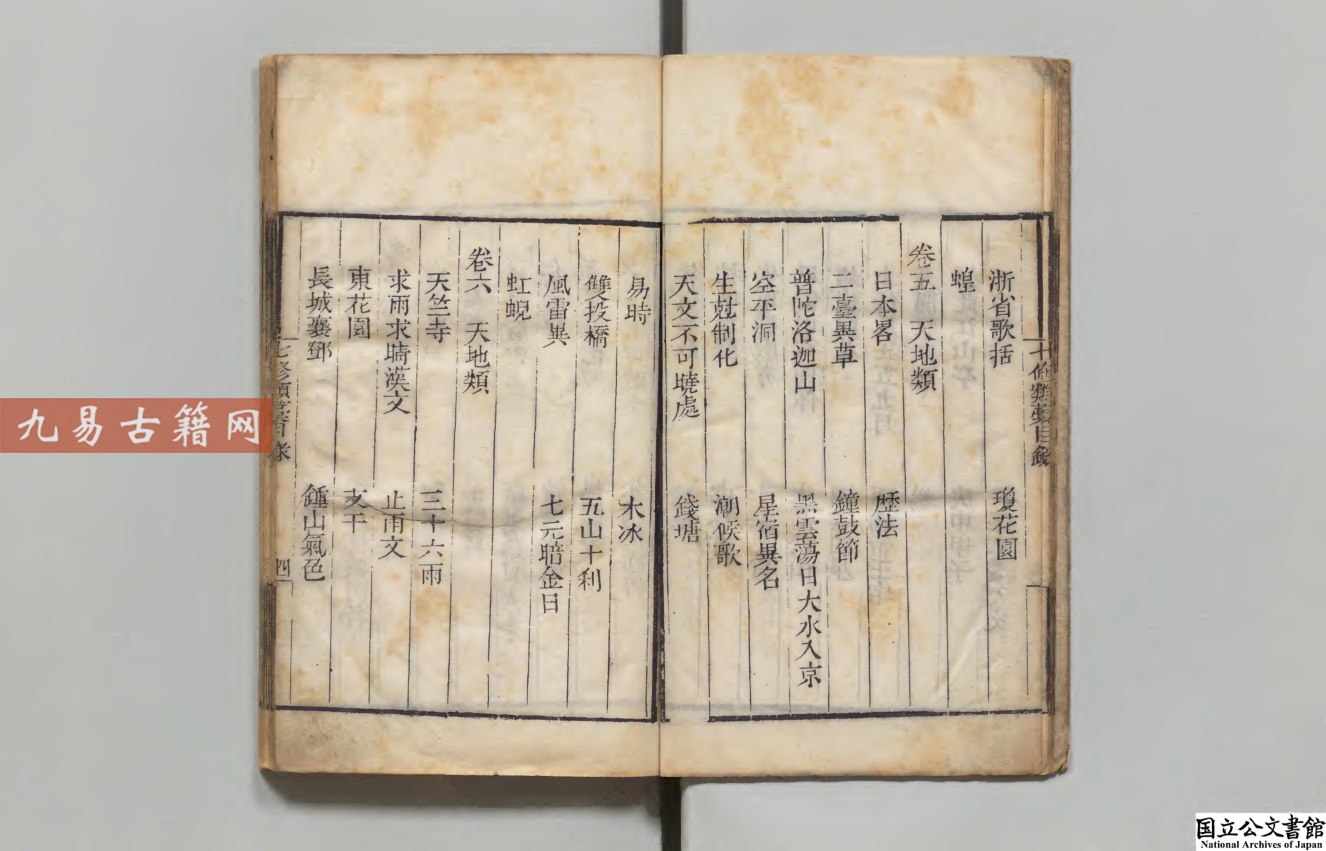 七修類藁目錄
浙省歌括 瓊花園
蝗
卷五 天地類
日本畧 歷法
二臺異草 鐘鼓節
普陀洛迦山 黑雲蕩日大水入京
空平洞 星宿異名
生尅制化 潮候歌
天文不可曉處 錢塘
易時 木冰
雙投橋 五山十刹
風雷異 七元暗金日
虹蜺
卷六 天地類
天竺寺 三十六雨
求雨求晴漢文 止雨文
東花園 支干
長城襄鄧 鍾山氣色
七修類藁目錄 四
九易古籍网
国立公文書館
National Archives of Japan